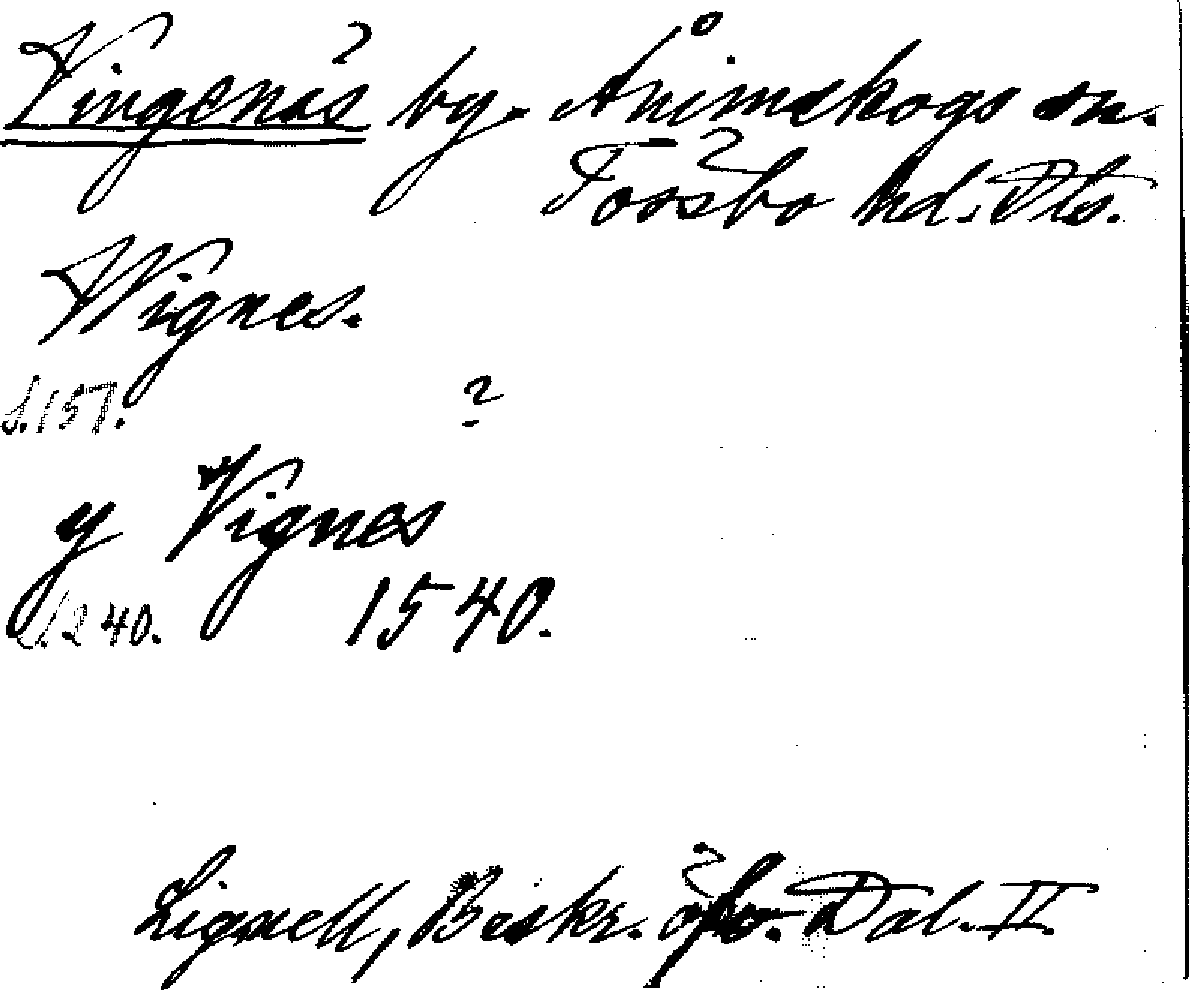 Vingenäs by. Ånimskogs sn.
Tössbo hd. Dls.
Wignes.
s. 157. ?
y Vignes
s. 240. 1540.
Lignell, Beskr. öfv. Dal. II.